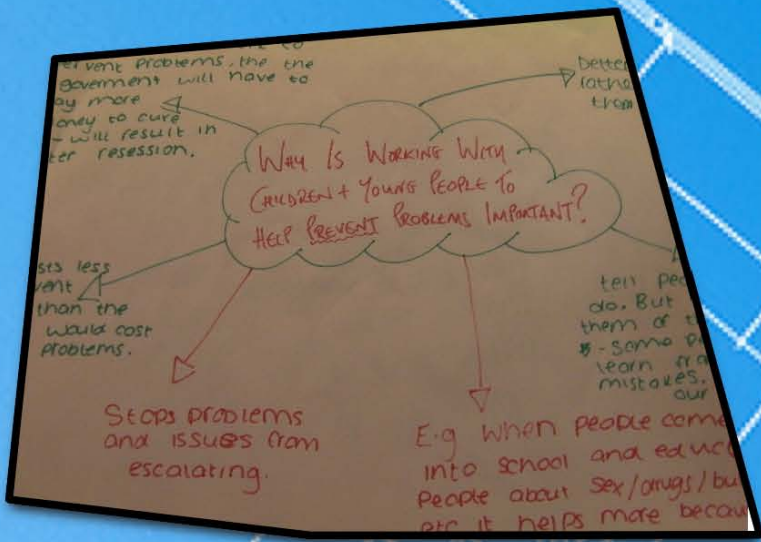 to
vent problems. the the
government will have to
more
to cure
- will result in
resession.
Better
rathe
WHY IS WORKING WITH
CHILDREN + YOUNG PEOPLE TO
HELP PREVENT PROBLEMS IMPORTANT?
less
than the
would cost
problems.
tell
do. But
them of
- some
learn
mistakes.
our
Stops problems
and issues from
escalating.
E.g when people come
into school and educ
people about sex/drugs/bu
etc it helps more becau